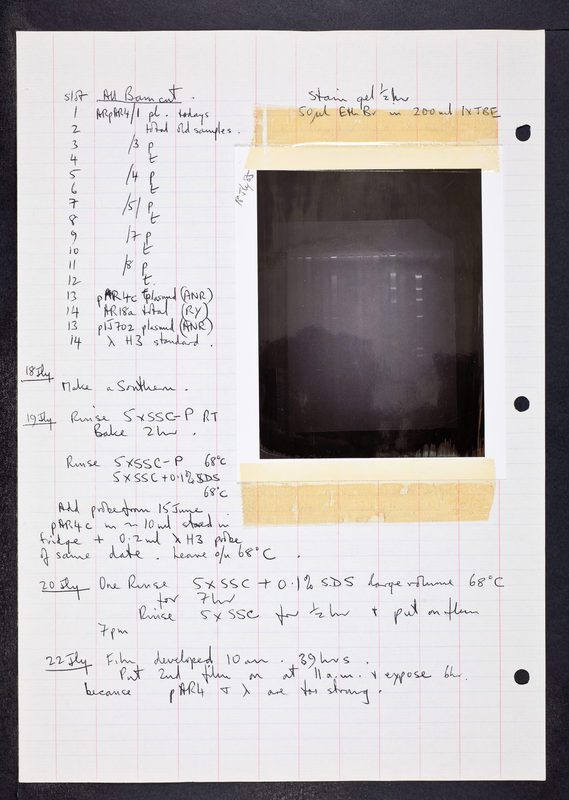 slot All Bam cut.
1 ARpAR4/1 pl. todays
2 total old samples.
3 /3 p
4 t
5 /4 p
6 t
7 /5/ p
8 t
9 /7 p
10 t
11 /8 p
12 t.
13 pAR4c plasmid (ANR)
14 AR18a total (RY)
13 pIJ702 plasmid (ANR)
14 λ H3 standard.
Stain gel ½ hr
50μl EthBr in 200ml 1xTBE
18 Jly 85
18 Jly
Make a Southern.
19 Jly Rinse 5xSSC-P RT
Bake 2hr.
Rinse 5xSSC-P 68°C
5xSSC+0.1% SDS
68°C
Add probe from 15 June
pAR4c in ~10ml stored in
fridge + 0.2ml λ H3 probe
of same date. Leave o/n 68°C.
20 Jly One Rinse 5xSSC + 0.1% SDS large volume 68°C
for 7hr
Rinse 5xSSC for ½ hr + put on film
7pm
22 Jly Film developed 10am. 39hrs.
Put 2nd film on at 11 a.m. + expose 6hr.
because pAR4 + λ are too strong.